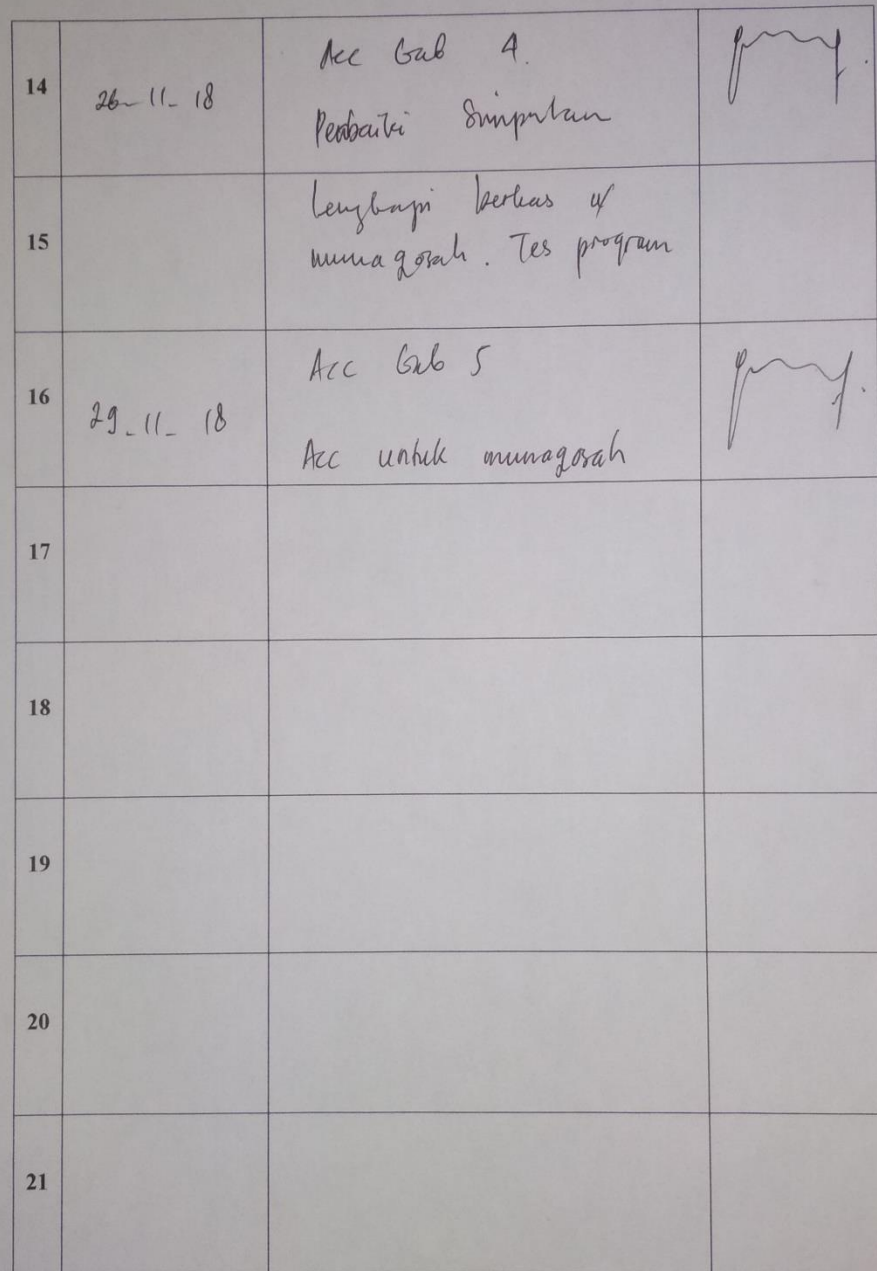 14
26-11-18
Acc Bab 4.
Perbaiki Simpulan
15
Lengkapi berkas u/
munaqosah. Tes program
16
29-11-18
Acc Bab 5
Acc untuk munaqosah
17
18
19
20
21